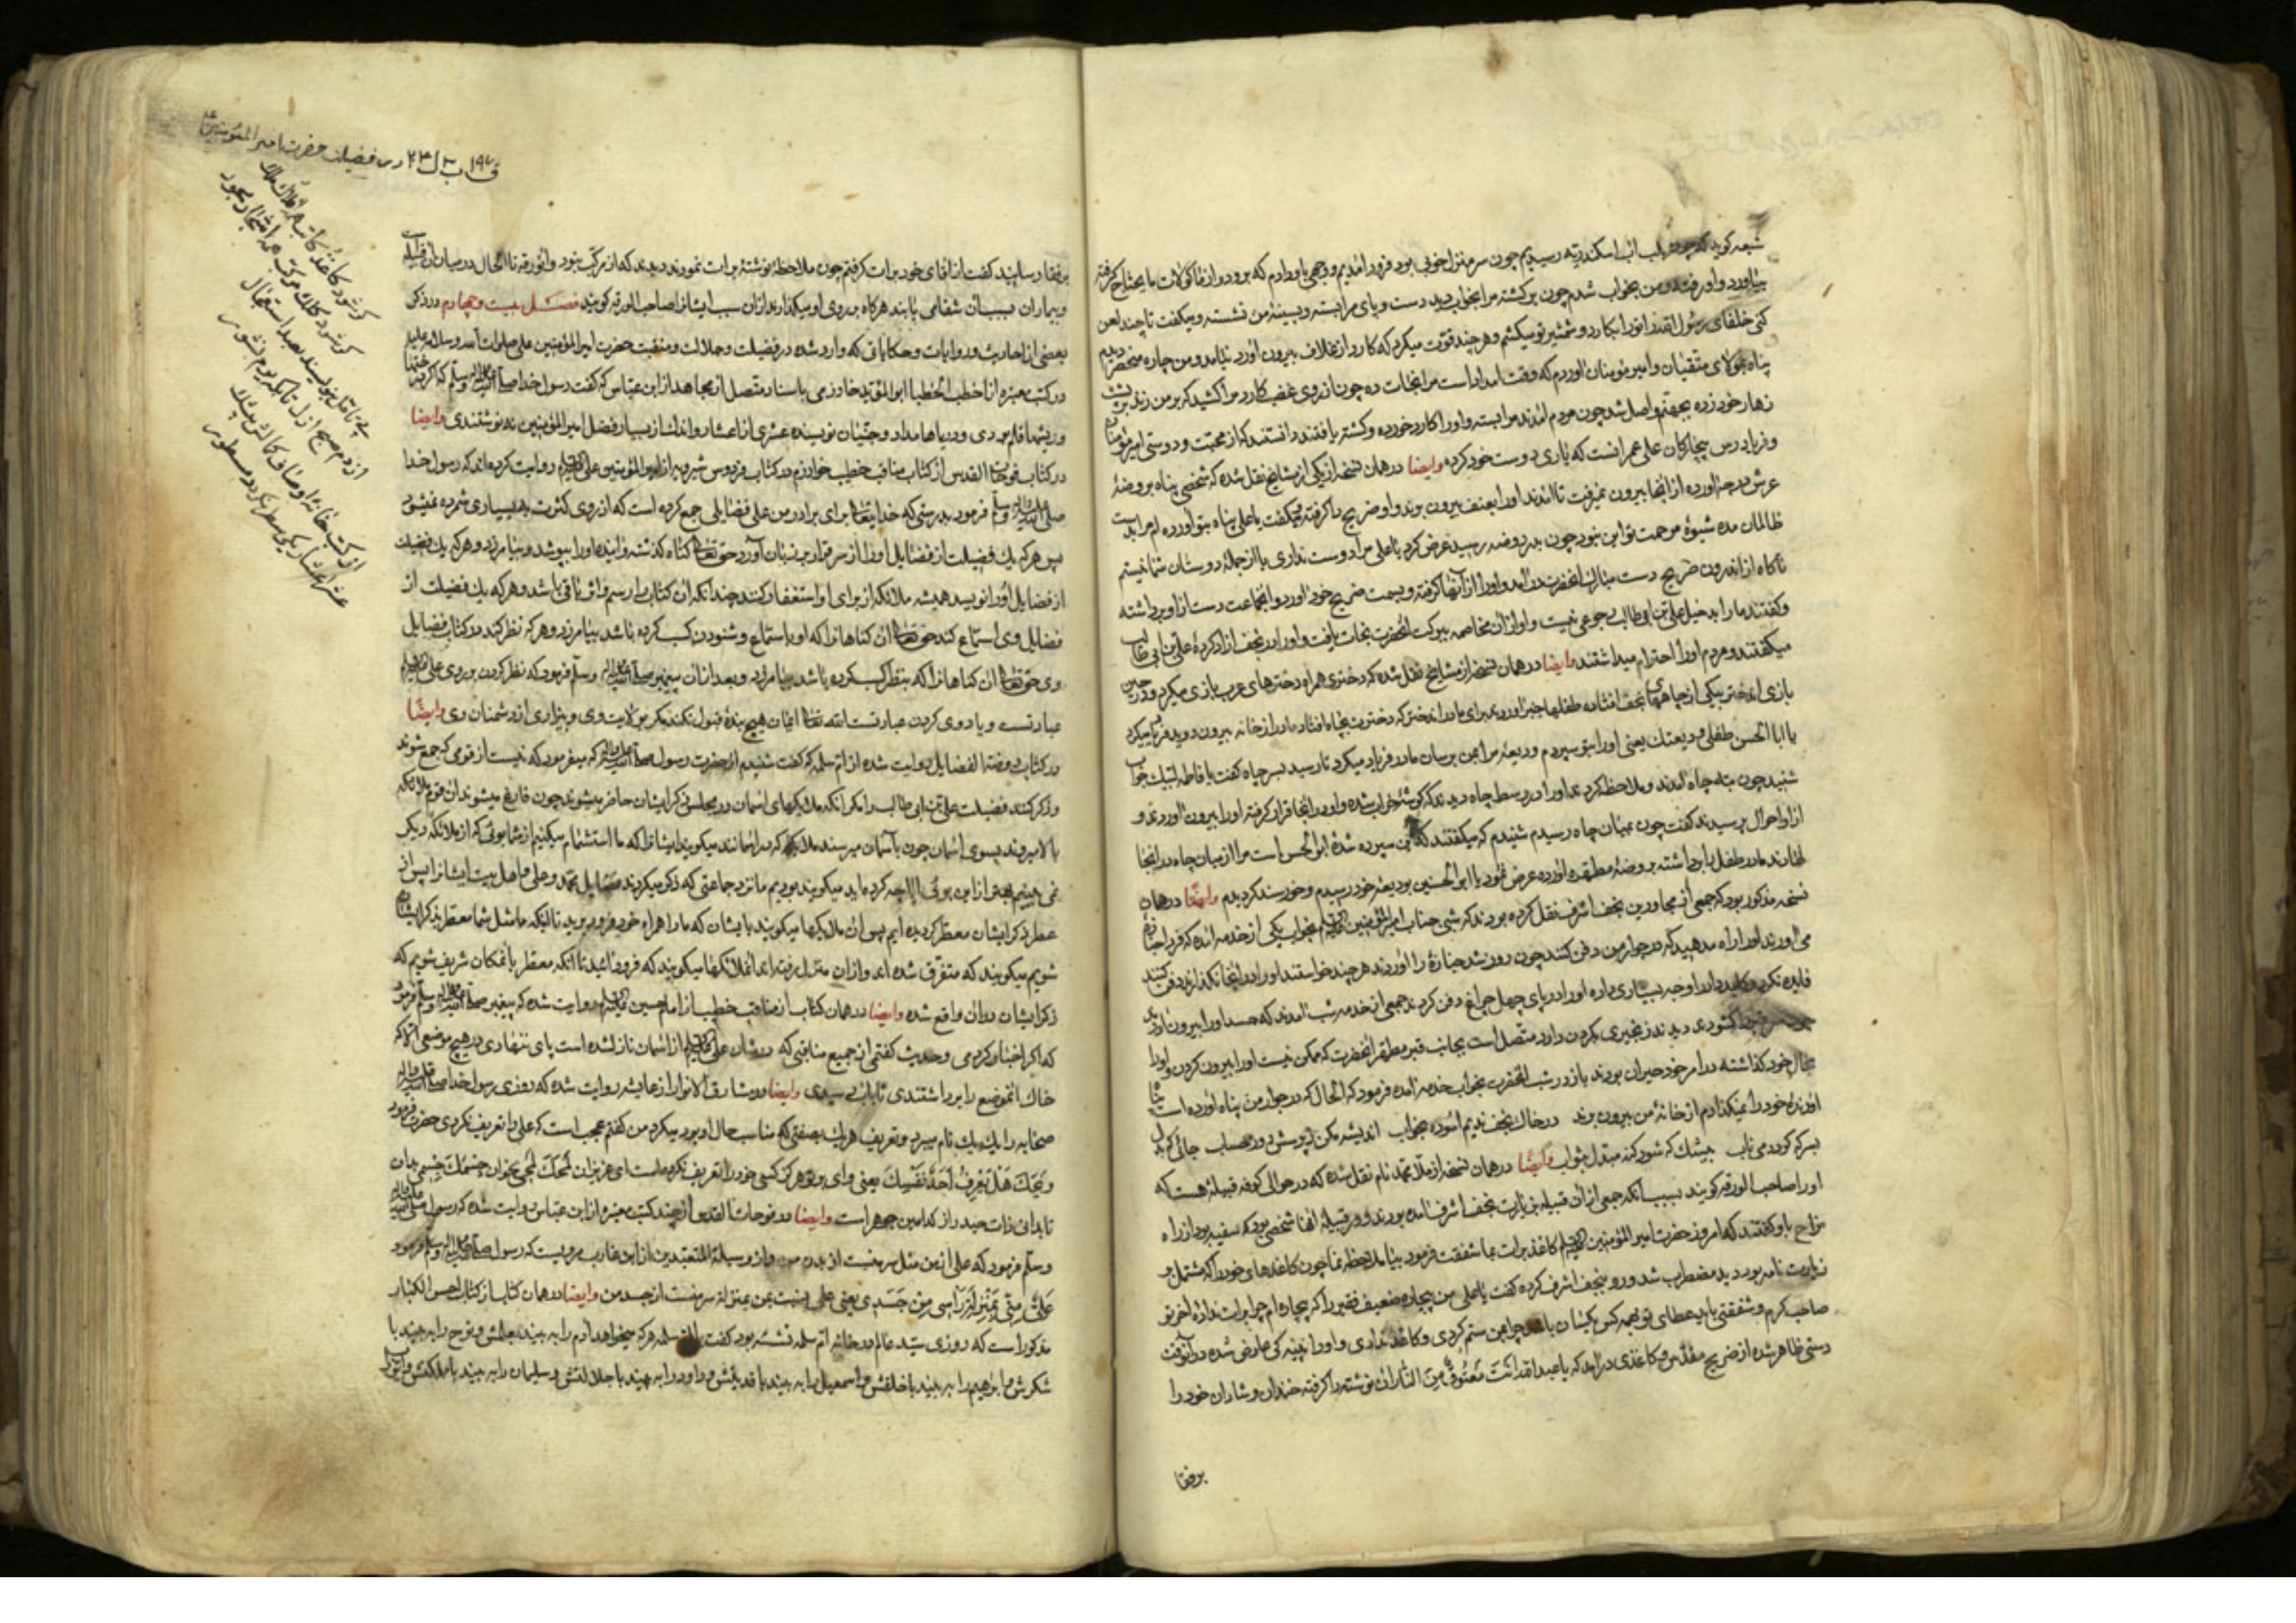 شیعه کوید که چون بلب آب اسکندریه رسیدیم چون سر منزل خوبی بود فرود امدیم و وجهی باو دادم که برود و از ماکولات ما یحتاج گرفته
بیاورد و او رفت و من بخواب شدم چون برکشته مرا بخواب دید دست و پای مرا بسته و بسینهٔ من نشسته و میکفت تا چند لعن
کنی خلفای رسول الله را تو را بکارد و شمشیر تو میکشم و هر چند قوت میکرد که کارد از غلاف بیرون اورد نیامد و من چاره منحصر دیدم
پناه بمولای متقیان و امیر مؤمنان اوردم که وقت امداد است مرا نجات ده چون از روی غضب کارد را کشید که بر من زند
زهار خود زده بجهنم واصل شد چون مردم امدند مرا بسته و او را کارد خورده و کشته یافتند دانستند که از محبت و دوستی امیر مؤمنان
و فریادرس بیچارکان علی عمرانست که یاری دوست خود کرده وایضا در همان نسخه از یکی از مشایخ نقل شده که شخصی پناه بروضهٔ
عرش درجه اورده از انجا بیرون نمیرفت تا امدند او را بعنف بیرون بردند و او ضریح را کرفته میکفت یا علی پناه بتو آورده ام مرا بدست
ظالمان مده شیوهٔ مرحمت تو این نبود چون بدر روضه رسید عرض کرد یا علی مرا دوست نداری یا از جملهٔ دوستان شما نیستم
ناکاه از اندرون ضریح دست مبارک انحضرت در امد و او را از آنها کرفته و بسمت ضریح خود اورد و انجماعت دست از او برداشته
و کفتند ما را بدخیل علی بن ابی طالب رجوعی نیست و او از ان مخاصمه ببرکت انحضرت نجات یافت و او را در نجف ازاد کردهٔ علی بن ابی طالب
میکفتند و مردم او را احترام میداشتند وایضا در همان نسخه از مشایخ نقل شده که دختری همراه دخترهای عرب بازی میکرد و در حین
بازی اندختر بیکی از چاههای نجف افتاده طفلها خبر اوردند برای مادر اندختر که دخترت بچاه افتاد مادر از خانه بیرون دوید فریاد میکرد
یا ابا الحسن طفلی ودیعتک یعنی او را بتو سپردم ودیعهٔ مرا بمن برسان مادر فریاد میکرد تا رسید بسر چاه کفت یا فاطمه لبیک جواب
شنید چون بته چاه امدند و ملاحظه کردند او را در وسط چاه دیدند که کوشهٔ خراب شده و او در انجا قرار کرفته او را بیرون اوردند و
از او احوال پرسیدند کفت چون بمیان چاه رسیدم شنیدم که میکفتند که این سپرده شدهٔ ابی الحسن است مرا از میان چاه در اینجا
نکاه دارند مادر طفل را برداشته بروضهٔ مطهره اورده عرض نمود یا ابو الحسنین بودیعهٔ خود رسیدم و خورسند کردیدم وایضًا در همان
نسخه مذکور بود که جمعی از مجاورین نجف اشرف نقل کرده بودند که شبی جناب امیرالمؤمنین بخواب یکی از خدمه امده که فردا جنازهٔ
می اورند او را راه مدهید که در جوار من دفن کنند چون روز شد جنازهٔ را اوردند هر چند خواستند او را در انجا نکذارند دفن کنند
فایده نکرد و کلید دار را وجه بسیاری داده او را در پای چهل چراغ دفن کردند جمعی از خدمه شب امدند که جسد او را بیرون اورند
کشودند دیدند زنجیری بکردن دارد متصل است بجانب قبر مطهر انحضرت که ممکن نیست او را بیرون کردن و او را
بحال خود کذاشته در امر خود حیران بودند باز در شب انحضرت بخواب خدمه امده فرمود که الحال که در جوار من پناه اورده است
اورندهٔ خود را نمیکذارم از خانهٔ من بیرون برند در خاک نجف ندیم اسوده بخواب اندیشه مکن ز پرسش روز حساب جائی که بدل
بسرکه کردد می ناب بیشک که شود کنه مبدل بثواب وایضًا در همان نسخه از ملا محمد نام نقل شده که در حوالی کوفه قبیلهٔ هست که
او را صاحب الورقه کویند بسبب انکه جمعی از ان قبیله بزیارت نجف اشرف امده بودند و در قبیلهٔ انها شخصی بود که سفیه بود از راه
مزاح باو کفتند که امروز حضرت امیر المؤمنین کاغذ برات بما شفقت فرمود بیا ملاحظه نما چون کاغذهای خود را که مشتمل بر
زیارت نامه بود دید مضطرب شد و رو بنجف اشرف کرده کفت یا علی من بیچاره ضعیف فقیر را که بیچاره ام چرا برات نداده اخر تو
صاحب کرم و شفقتی باید عطای تو بهمه کس یکسان باشد چرا بمن ستم کردی و کاغذ ندادی و او را کریه کی عارض شده در آنوقت
دستی ظاهر شده از ضریح مقدس و کاغذی در امد که یا عبدالله انت معتوق من النار ان نوشته را کرفته خندان و شادان خود را
برفقا
ق ١٩٧ ب ٣ ل ٢٣ در فضیلت حضرت امیر المؤمنین ع
برفقا رسانید کفت از اقای خود برات کرفتم چون ملاحظهٔ نوشتهٔ برات نمودند دیدند که از مرکب نبود و انورقه تا الحال در میان ان قبیله است
و بیماران بسبب ان شفا می یابند هر کاه بر روی او میکذارند از ان سبب ایشانرا صاحب الورقه کویند فصل بیست و چهارم در ذکر
بعضی از احادیث و روایات و حکایاتی که وارد شده در فضیلت و جلالت و منقبت حضرت امیر المؤمنین علی صلوات الله و سلامه علیه
در کتب معتبره از اخطب الخطبا ابو المؤید خوارزمی باسناد متصل از مجاهد از ابن عباس که کفت رسول خدا صلی الله علیه واله وسلم که اکر
و ریشها قلم بودی و دریاها مداد و جنیان نویسنده عشری از اعشار و اندک از بسیار فضل امیر المؤمنین نه نوشتندی وایضا
در کتاب فوحات القدس از کتاب مناقب خطیب خوارزم و در کتاب فردوس شیرویه از امیر المؤمنین علی روایت کرده اند که رسول خدا
صلی الله علیه واله وسلم فرمود بدرستی که خدایتعالی برای برادر من علی فضایلی جمع کرده است که از روی کثرت به بسیاری شمرده نمیشود
پس هر که یک فضیلت از فضایل او را از سر قرار بر زبان آورد حق تعالی کناه کذشته و اینده او را بپوشد و بیامرزد و هر که یک فضیلت
از فضایل او را نویسد همیشه ملائکه از برای او استغفار کنند چندانکه ان کتاب را رسم و اثر باقی باشد و هر که یک فضیلت از
فضایل وی استماع کند حق تعالی ان کناهانرا که او باستماع و شنودن کسب کرده باشد بیامرزد و هر که نظر کند در کتاب فضایل
وی حق تعالی ان کناهانرا که بنظر کسب کرده باشد بیامرزد و بعد از ان پیغمبر صلی الله علیه واله وسلم فرمود که نظر کردن بر روی علی
عبادتست و یاد وی کردن عبادتست الله تعالی ایمان هیچ بندهٔ قبول نکند مکر بولایت وی و بیزاری از دشمنان وی وایضًا
در کتاب روضة الفضایل روایت شده از ام سلمه که کفت شنیدم از حضرت رسول صلی الله علیه واله که میفرمود که نیست از قومی که جمع شوند
و ذکر کنند فضیلت علی بن ابی طالب را مکر انکه ملایکهای اسمان در مجلس ذکر ایشان حاضر میشوند چون فارغ میشوند ان قوم ملائکه
بالا میروند بسوی اسمان چون بآسمان میرسند ملایکه که در اسمانند میکویند ایشانرا که ما استشمام میکنیم از شما بوئی که از ملائکه دیکر
نمی بینیم بهتر از این بوئی ایا چه کرده اید میکویند بودیم ما نزد جماعتی که ذکر میکردند فضایل محمد و علی و اهل بیت ایشانرا پس از
عطر ذکر ایشان معطر کردیده ایم پس ان ملایکها میکویند بایشان که ما را همراه خود فرود برید تا اینکه ما مثل شما معطر بذکر ایشان
شویم میکویند که متفرق شده اند و از ان منزل رفته اند انملائکها میکویند که فرود ائید تا انکه معطر بانمکان شریف شویم که
ذکر ایشان در ان واقع شده وایضا در همان کتاب از مناقب خطیب از امام حسین روایت شده که پیغمبر صلی الله علیه واله وسلم فرمود
که اکر اخبار کردمی و حدیث کفتمی از جمیع مناقبی که در شان علی از اسمان نازل شده است پای ننهادی در هیچ موضعی الا که
خاک انموضع را برداشتندی تا باب رسیدی وایضا در مشارق الانوار از عایشه روایت شده که روزی رسول خدا صلی الله علیه واله
صحابه را یک یک نام میبرد و تعریف هر یک بصفتی که مناسب حال او بود میکرد من کفتم عجب است که علی را تعریف نکردی حضرت فرمود
ویحک هل یعرف احد نفسک یعنی وای بر تو هرکز کسی خود را تعریف نکرده است ای عزیز ان لحمک لحمی بخوان جسمک جسمی بدان
تا بدانی ذات حیدر از کدامین جوهر است وایضا در فوحات القدس از چند کتب معتبره از ابن عباس روایت شده که رسول صلی الله علیه واله
وسلم فرمود که علی از من مثل سر منست از بدن من و از وسیلة المتعبدین از ابن عازب مرویست که رسول صلی الله علیه واله وسلم فرمود
علی منی بمنزلة راسی من جسدی یعنی علی نسبت بمن بمنزلهٔ سر منست از جسد من وایضا در همان کتاب از کتاب احسن الکبار
مذکور است که روزی سید عالم در خانهٔ ام سلمه نشسته بود کفت یا ام سلمه هر که میخواهد ادم را به بیند بعلمش و نوح را به بیند با
شکرش و ابرهیم را به بیند با خلقش و اسمعیل را به بیند با فدیتش و داود را به بیند با جلالتش و سلیمان را به بیند با ملکتش و ایوب را
کر شود کاغذ کاتب
کر شود کلک
ازدم صبح ازل تا که یوم نشور
از کتب خانهٔ اوصاف کمالش
عشر اعشار یکی سطر نکردد مسطور